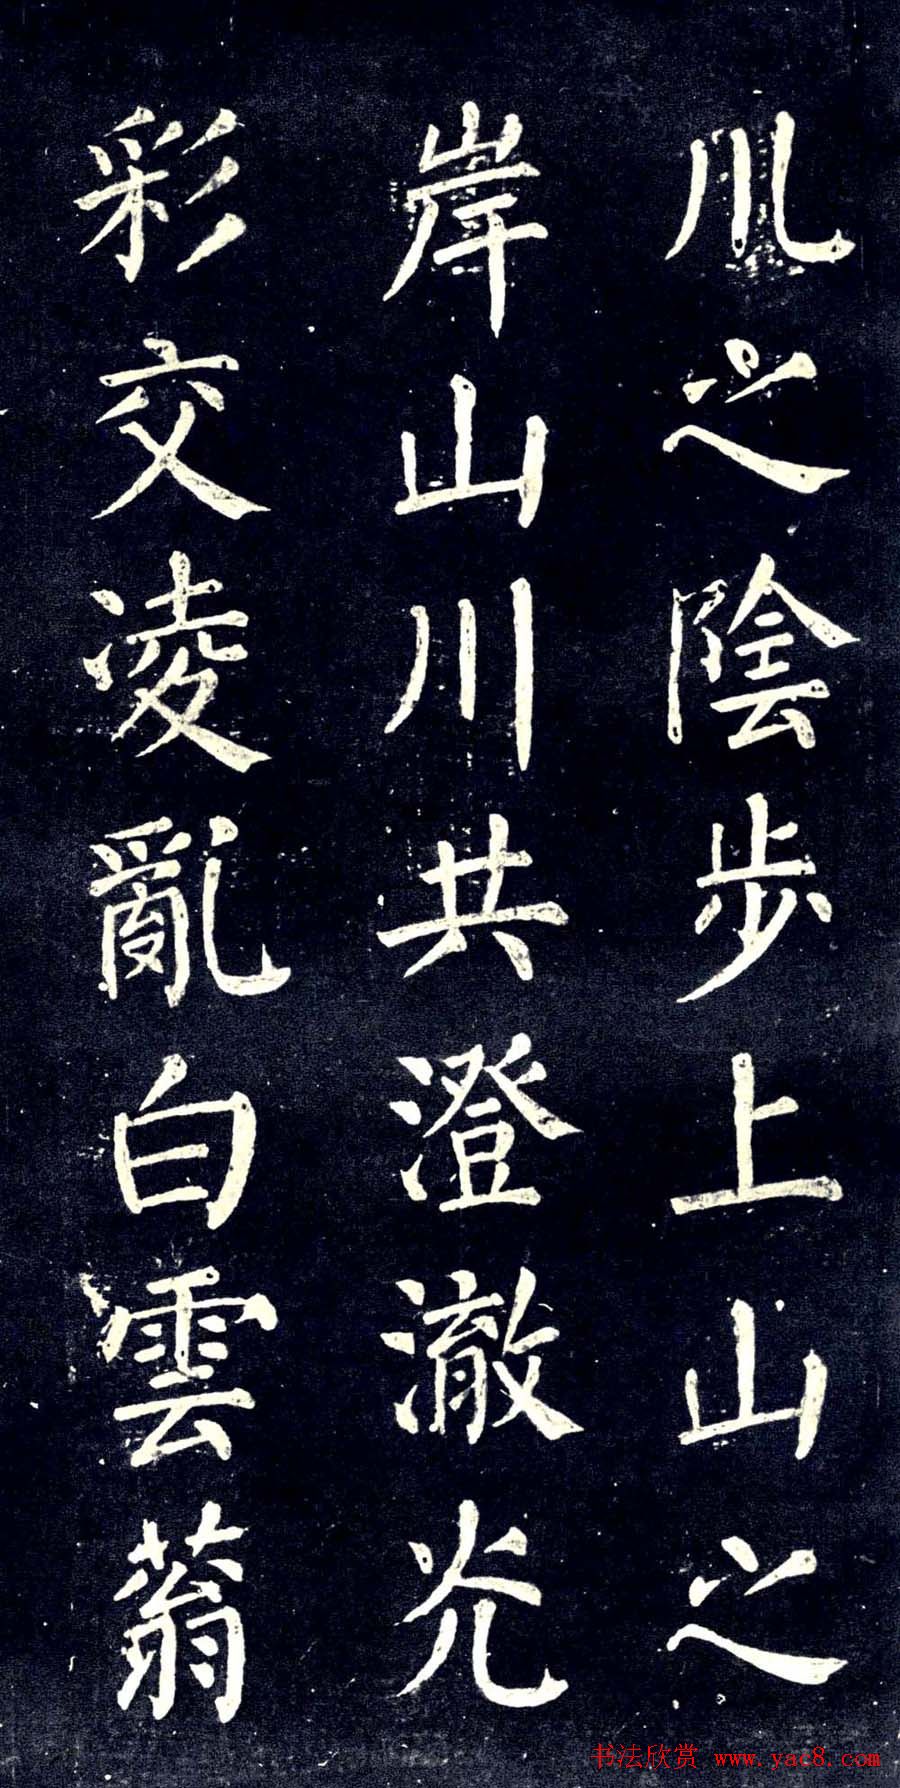 川之陰步上山之
岸山川共澄澈光
彩交凌亂白雲蓊
书法欣赏 www.yac8.com